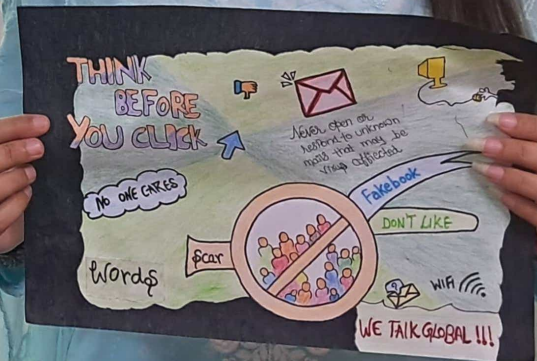 THINK
BEFORE
YOU CLICK
Never open or
respond to unknown
mails that may be
virus affected
NO ONE CARES
Fakebook
DON'T LIKE
Scar
Words
WIFI
WE TALK GLOBAL !!!